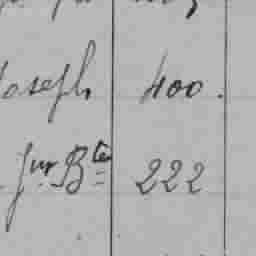 Joseph 400.
Jn Bte 222